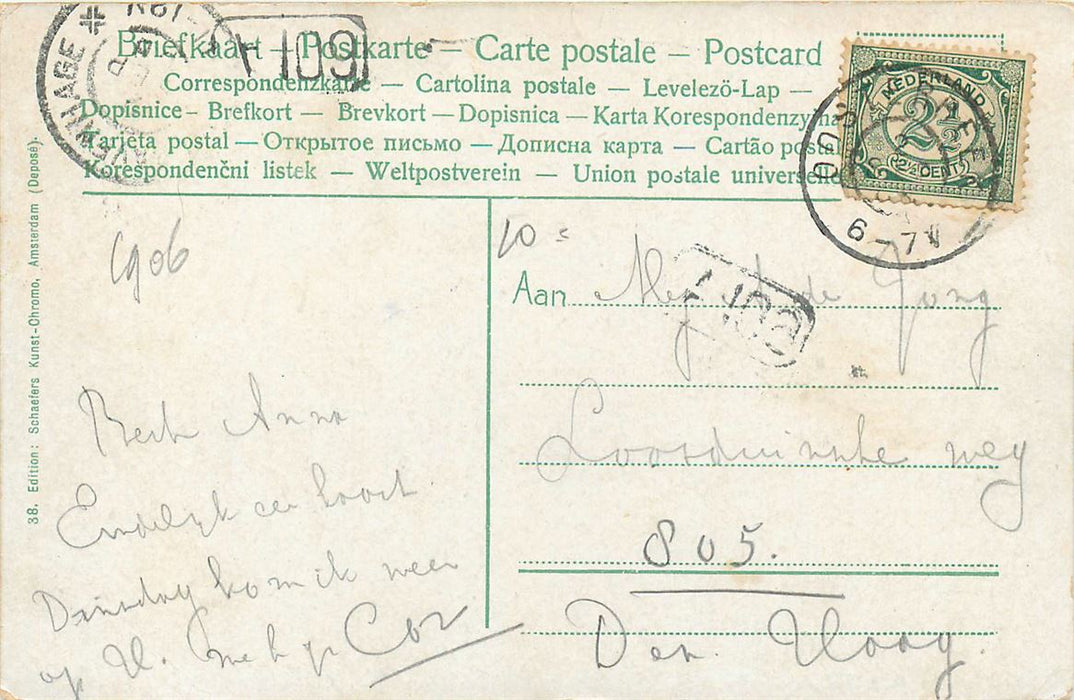 Briefkaart — Postkarte — Carte postale — Postcard
Correspondenzkarte — Cartolina postale — Levelezö-Lap —
Dopisnice — Brefkort — Brevkort — Dopisnica — Karta Korespondenzyjna
Karjeta postal — Открытое письмо — Дописна карта — Cartão postal
Korespondenční listek — Weltpostverein — Union postale universelle
NEDERLAND
2½
2½ CENT
6-7V
38. Edition: Schaefers Kunst-Chromo, Amsterdam (Deposé).
1906
10 s
Aan Mej A de Jong
Loosduinsche weg
805.
Den Haag.
Anna
Eindelijk een kaart
Dinsdag kom ik weer
op U. Cor